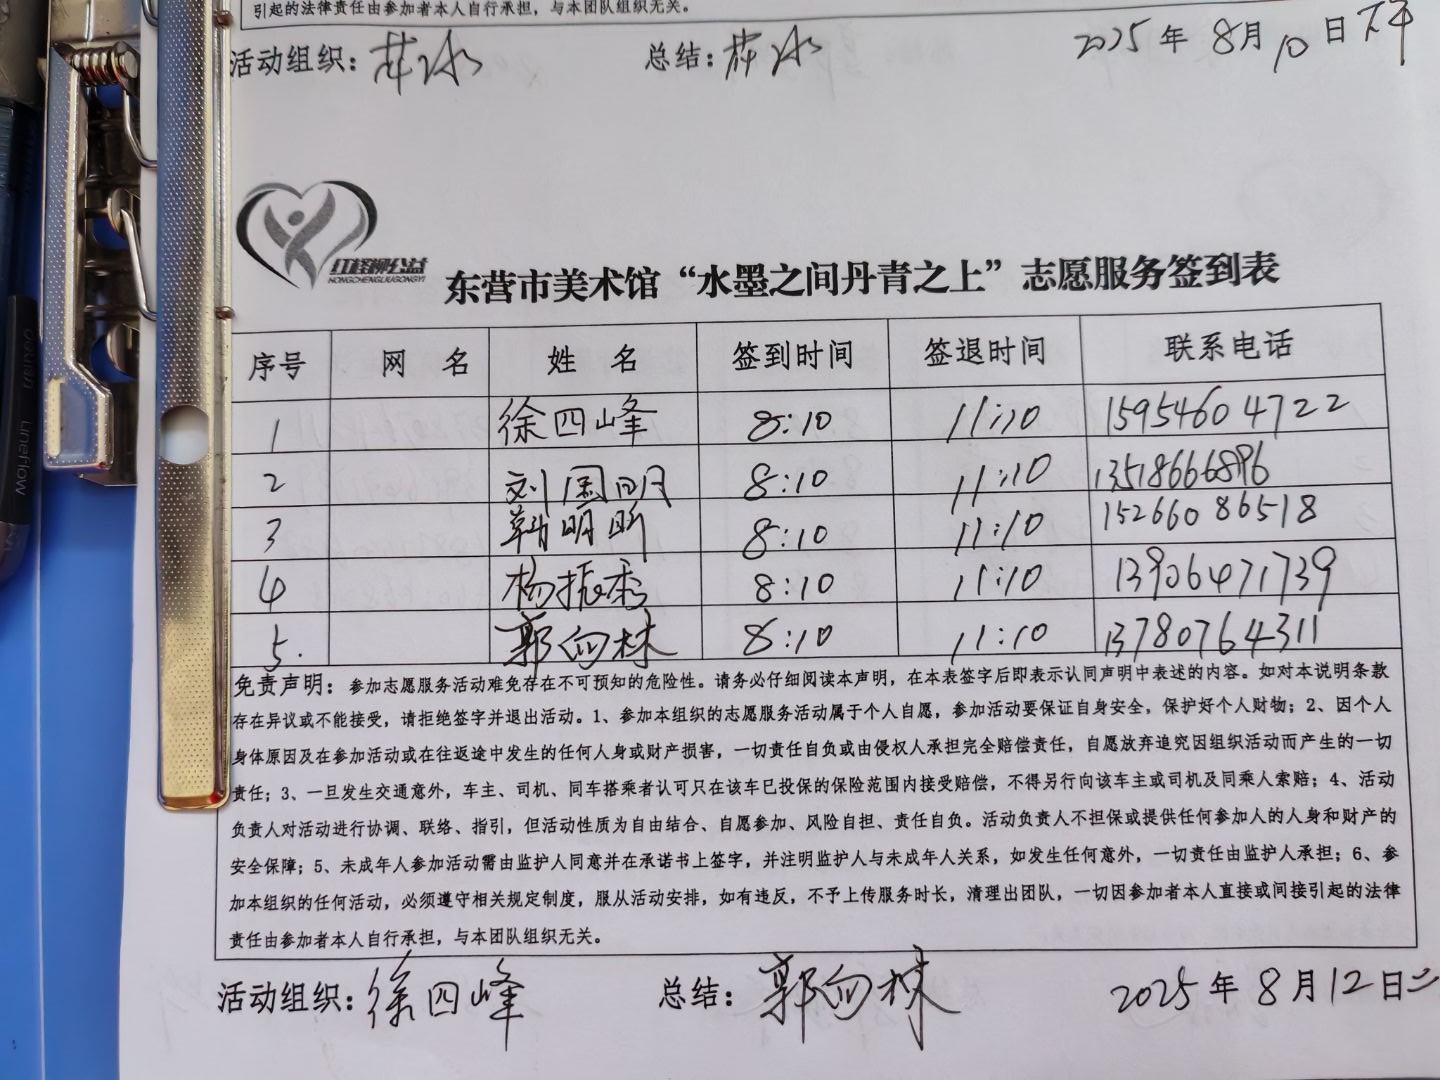 引起的法律责任由参加者本人自行承担，与本团队组织无关。
活动组织： 总结： 2025年8月10日下午
红柽柳公益
HONGCHENGLIUGONGYI
东营市美术馆“水墨之间丹青之上”志愿服务签到表
序号 网 名 姓 名 签到时间 签退时间 联系电话
1 徐四峰 8:10 11:10 15954604722
2 刘国明 8:10 11:10 13518666896
3 韩明昕 8:10 11:10 15266086518
4 杨振秀 8:10 11:10 13906471739
5. 郭向林 8:10 11:10 13780764311
免责声明：参加志愿服务活动难免存在不可预知的危险性。请务必仔细阅读本声明，在本表签字后即表示认同声明中表述的内容。如对本说明条款
存在异议或不能接受，请拒绝签字并退出活动。1、参加本组织的志愿服务活动属于个人自愿，参加活动要保证自身安全，保护好个人财物；2、因个人
身体原因及在参加活动或在往返途中发生的任何人身或财产损害，一切责任自负或由侵权人承担完全赔偿责任，自愿放弃追究因组织活动而产生的一切
责任；3、一旦发生交通意外，车主、司机、同车搭乘者认可只在该车已投保的保险范围内接受赔偿，不得另行向该车主或司机及同乘人索赔；4、活动
负责人对活动进行协调、联络、指引，但活动性质为自由结合、自愿参加、风险自担、责任自负。活动负责人不担保或提供任何参加人的人身和财产的
安全保障；5、未成年人参加活动需由监护人同意并在承诺书上签字，并注明监护人与未成年人关系，如发生任何意外，一切责任由监护人承担；6、参
加本组织的任何活动，必须遵守相关规定制度，服从活动安排，如有违反，不予上传服务时长，清理出团队，一切因参加者本人直接或间接引起的法律
责任由参加者本人自行承担，与本团队组织无关。
活动组织：徐四峰 总结：郭向林 2025年8月12日二